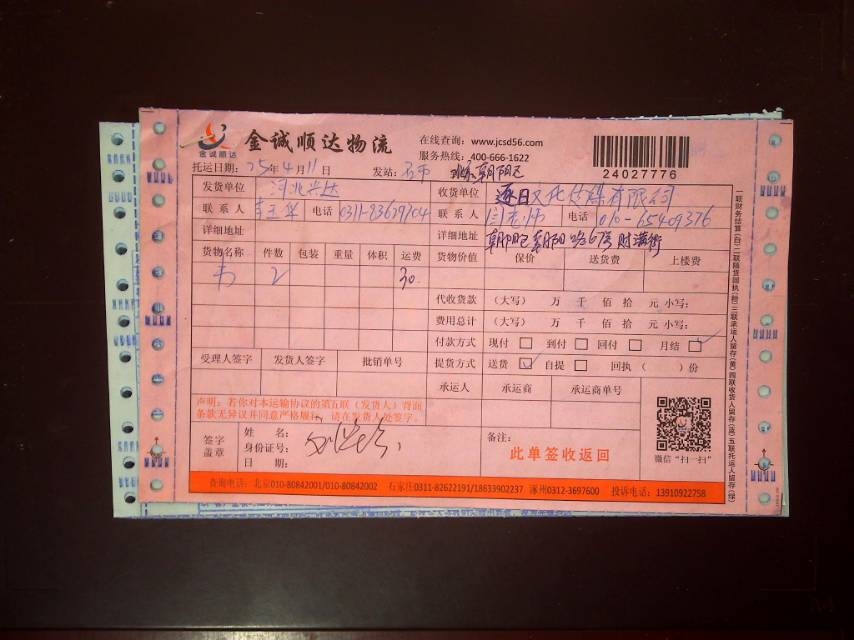 金诚顺达
金诚顺达物流
在线查询：www.jcsd56.com
服务热线：400-666-1622
24027776
托运日期：25年4月11日 发站：石市 北京朝阳区
发货单位 河北兴达 收货单位 逐日文化传媒有限公司
联系人 电话 0311-83629704 联系人 电话 010-65409376
详细地址 详细地址 朝阳区朝阳路67号财满街
货物名称 件数 包装 重量 体积 运费 货物价值 保价 送货费 上楼费
书 2 30
代收货款 （大写） 万 千 佰 拾 元 小写：
费用总计 （大写） 万 千 佰 拾 元 小写：
付款方式 现付 □ 到付 □ 回付 □ 月结 □
受理人签字 发货人签字 批销单号 提货方式 送货 □ 自提 □ 回执（ ）份
承运人 承运商 承运商单号
声明：若你对本运输协议的第五联（发货人）背面
条款无异议并同意严格履行，请在发货人处签字。
签字
盖章
姓 名：
身份证号：
日 期：
备注：
此单签收返回
微信“扫一扫”
查询电话：北京010-80842001/010-80842002 石家庄0311-82622191/18633902237 涿州0312-3697600 投诉电话：13910922758
一联财务结算（白）二联随货回执（粉）三联承运人留存（黄）四联收货人留存（蓝）五联托运人留存（绿）